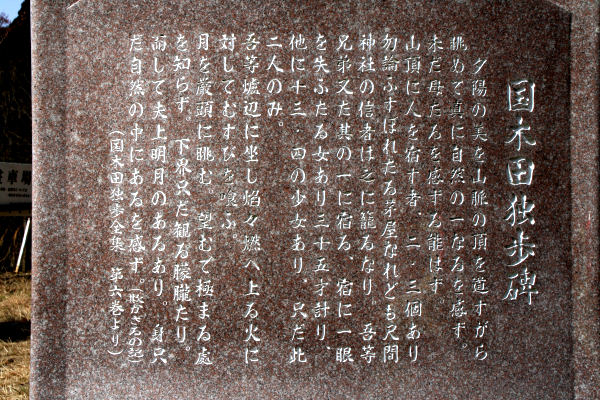 国木田独歩碑
夕陽の美を山脈の頂を直すがら
眺めて真に自然の一なるを感ず。
未だ母たるを感ずる能はず。
山頂に人を宿す者、二、三個あり
勿論ふすぼれたる茅屋なれども尺間
神社の信者は之に籠るなり 吾等
兄弟又た其の一に宿る、宿に一眼
を失ふたる女あり三十五才計り、
他に十三、四の少女あり、只だ此
二人のみ。
吾等爐辺に坐し焔々燃へ上る火に
対してむすびを喰ふ。
月を巌頭に眺む、望むで極まる處
を知らず。下界只だ観る朦朧たり。
而して天上明月のあるあり。身只
だ自然の中にあるを感ず。
(国木田独歩全集 第六巻より)